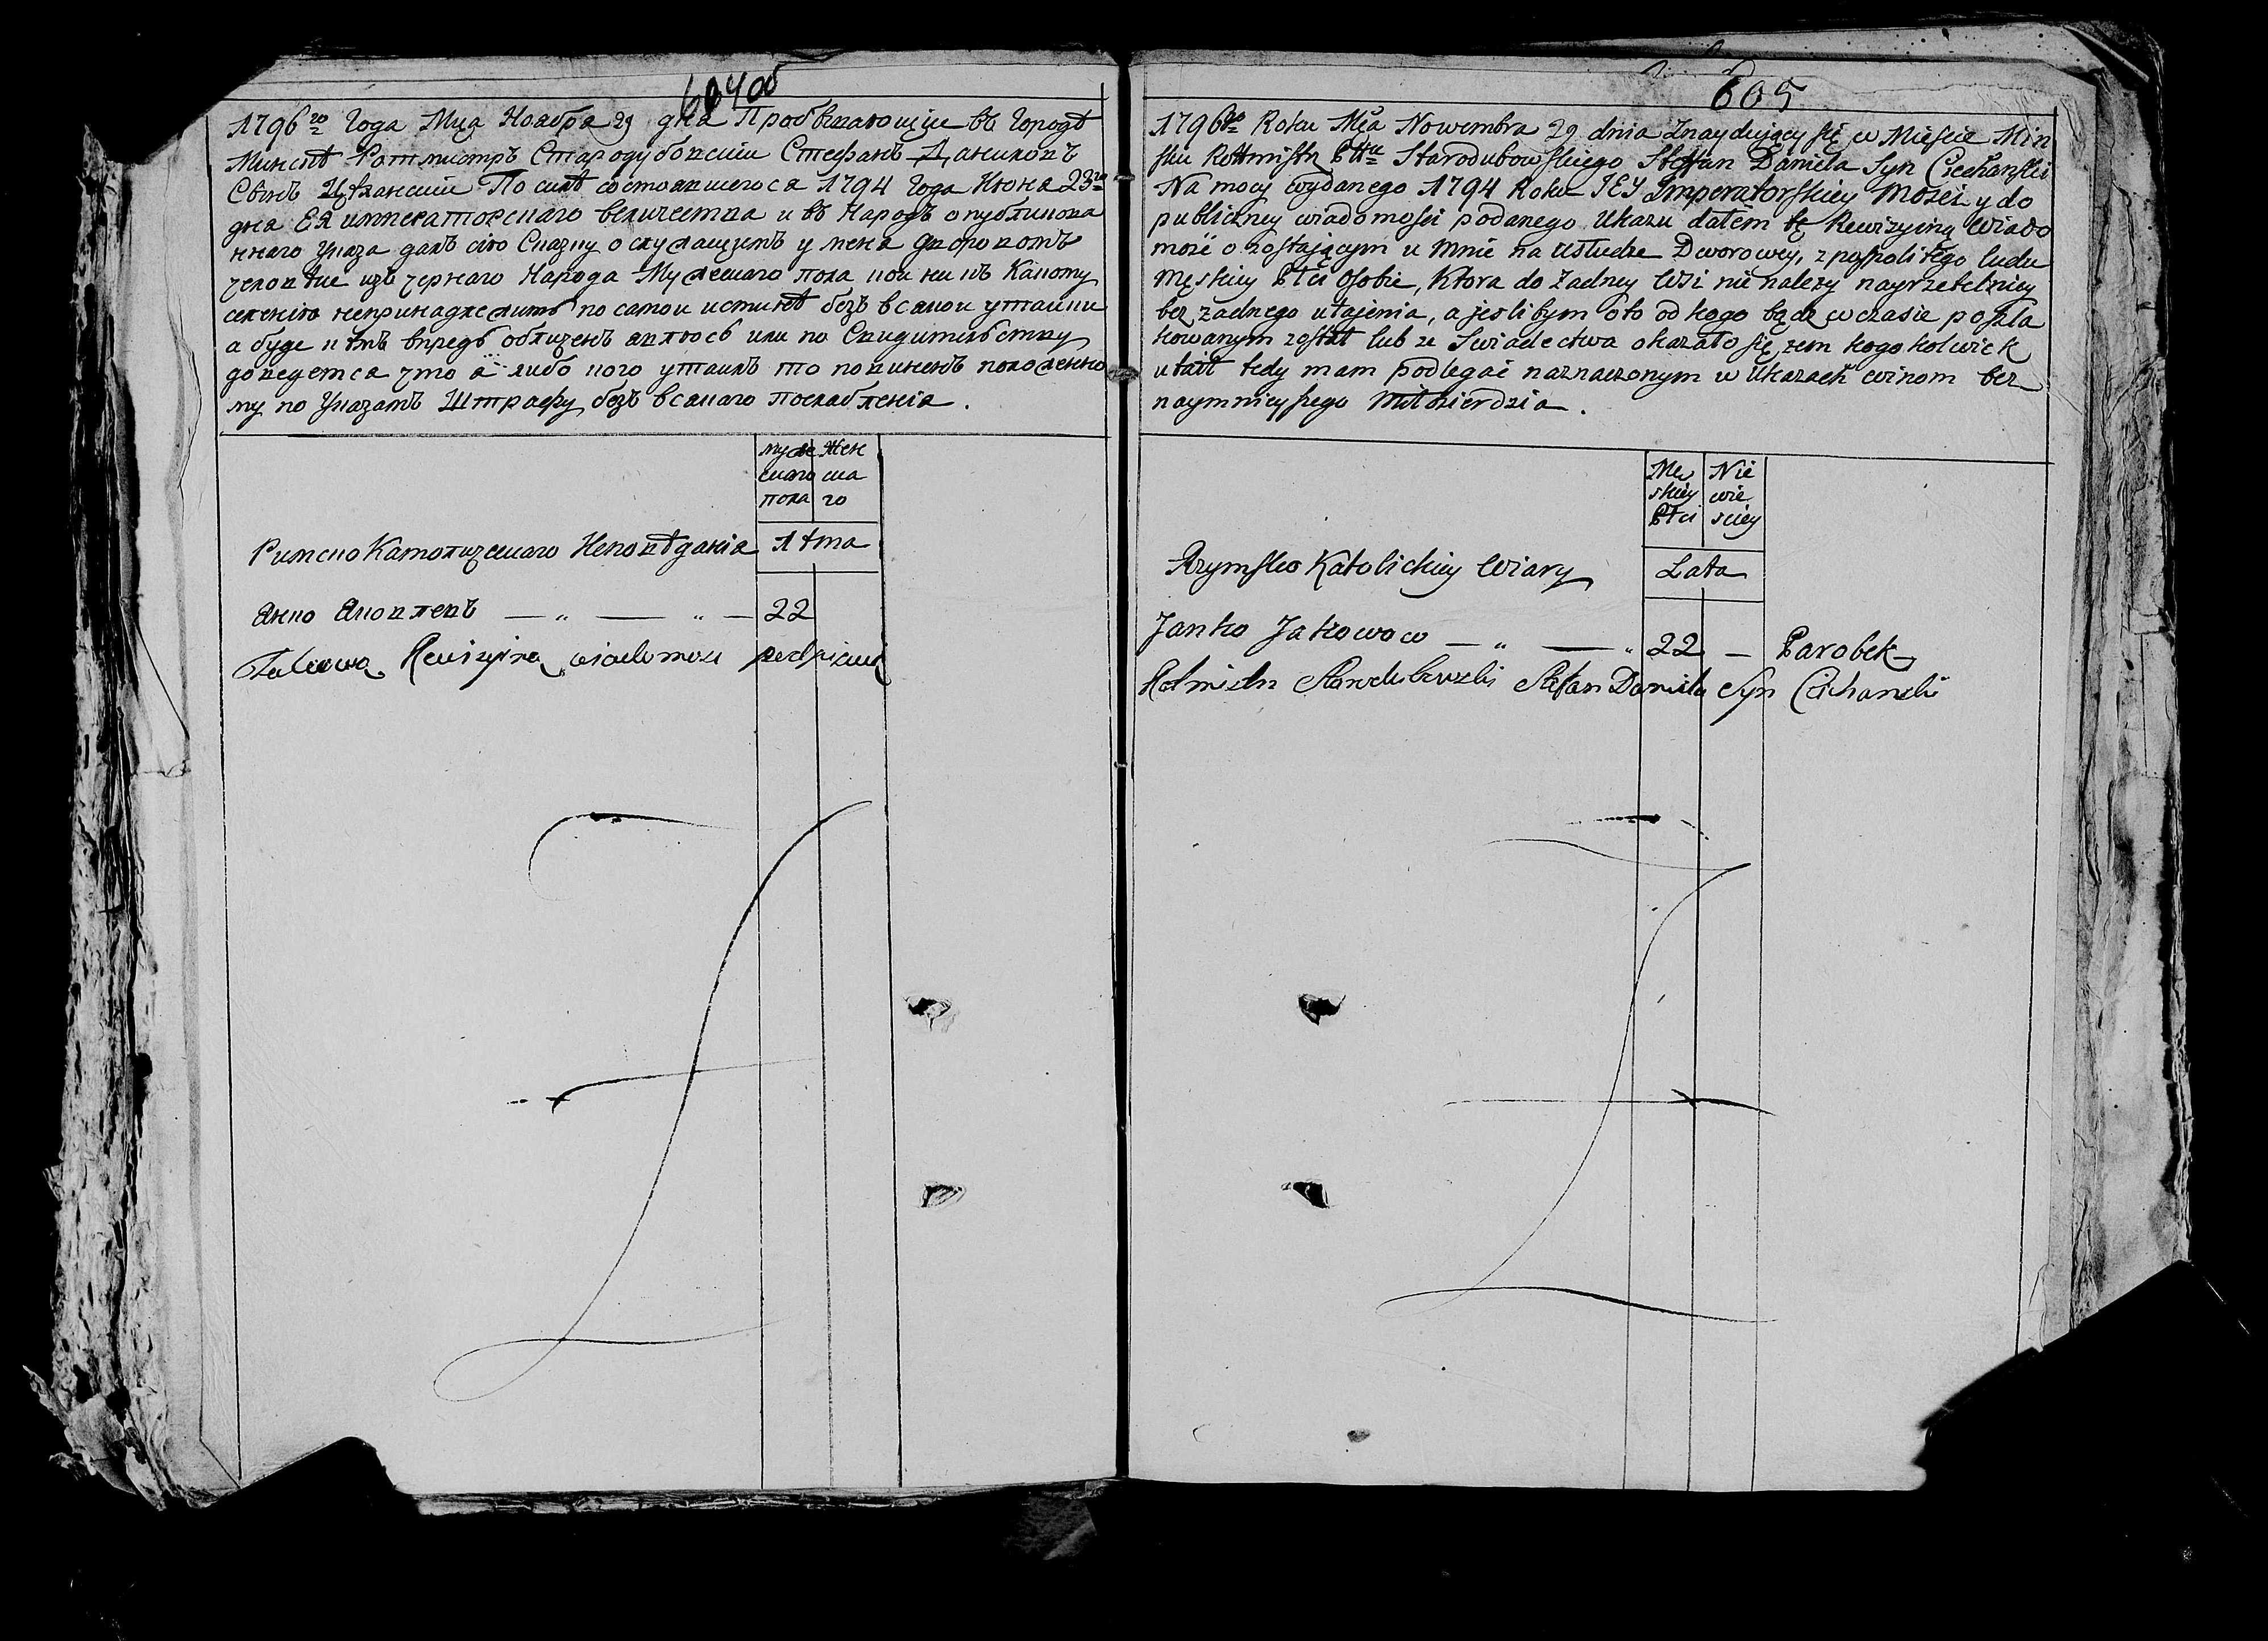 604об
1796го Года Мца Ноября 29 дня Пробывающии въ Городѣ
Минскѣ Ротмистръ Стародубовскии Стефанъ Даниловъ
Сынъ Цѣханскии По силѣ состоявшегося 1794 Года Июня 23го
дня ЕЯ императорскаго величества и въ Народъ опубликова
ннаго Указа далъ сию Сказку о служащемъ у меня дворовомъ
человѣке изъ чернаго Народа Мужескаго пола кои ни къ Какому
селению непринадлежитъ по самои истинѣ безъ всякои утаики
а буде кѣмъ впредь обличенъ явлюсь или по Свидительству
доведется что я либо кого утаилъ то повиненъ положенно
му по Указамъ Штрафу безъ всякаго послабления.
муже Жен
скаго ска
пола го
Римско Католическаго Исповѣдания лѣта
Янко Яковлевъ — „ — „ — 22
Takową Rewizyiną wiadomość podpisuię
605
1796go Roku Mca Nowembra 29 dnia Znayduiący się w Mieście Min
sku Rottmistrz Pttu Starodubowskiego Steffan Daniela Syn Ciechański
Na mocy wydanego 1794 Roku JEY Imperatorskiey Mości y do
publiczney wiadomości podanego Ukazu dałem tę Rewizyiną Wiado
mość o zostającym u mnie na usłudze Dworowey, z pospolitego ludu
Męskiey Płci osobie, Ktora do żadney Wsi nie należy nayrzetelniey
bez żadnego utajenia, a jeslibym oto od kogo bądz w czasie poszla
kowanym został lub ze Swiadectwa okazało się zem kogo kolwiek
utaił tedy mam podlegać naznaczonym w Ukazach winom bez
naymnieyszego Miłosierdzia.
Mę Nie
skiey wie
Płci sciey
Rzymsko Katolickiey Wiary Lata
Janko Jakowow — „ — „ 22 — Parobek
Rotmistrz Starodubowski Stefan Daniela Syn Ciechański